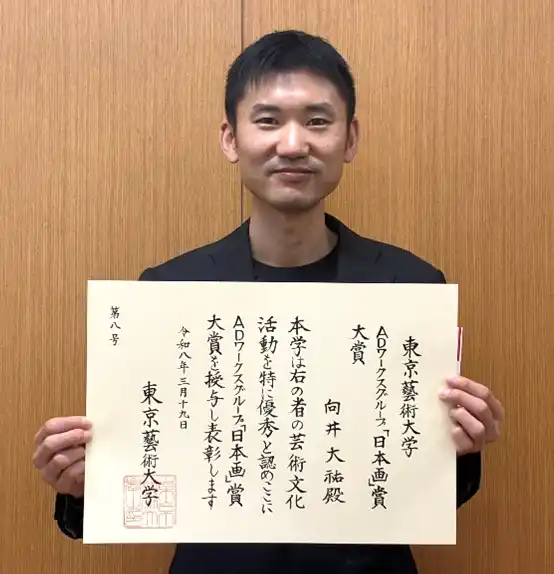 東京藝術大学
ADワークスグループ「日本画」賞
大賞
向井大祐殿
本学は右の者の芸術文化
活動を特に優秀と認めここに
ADワークスグループ「日本画」賞
大賞を授与し表彰します
令和八年三月十九日
東京藝術大学
第八号